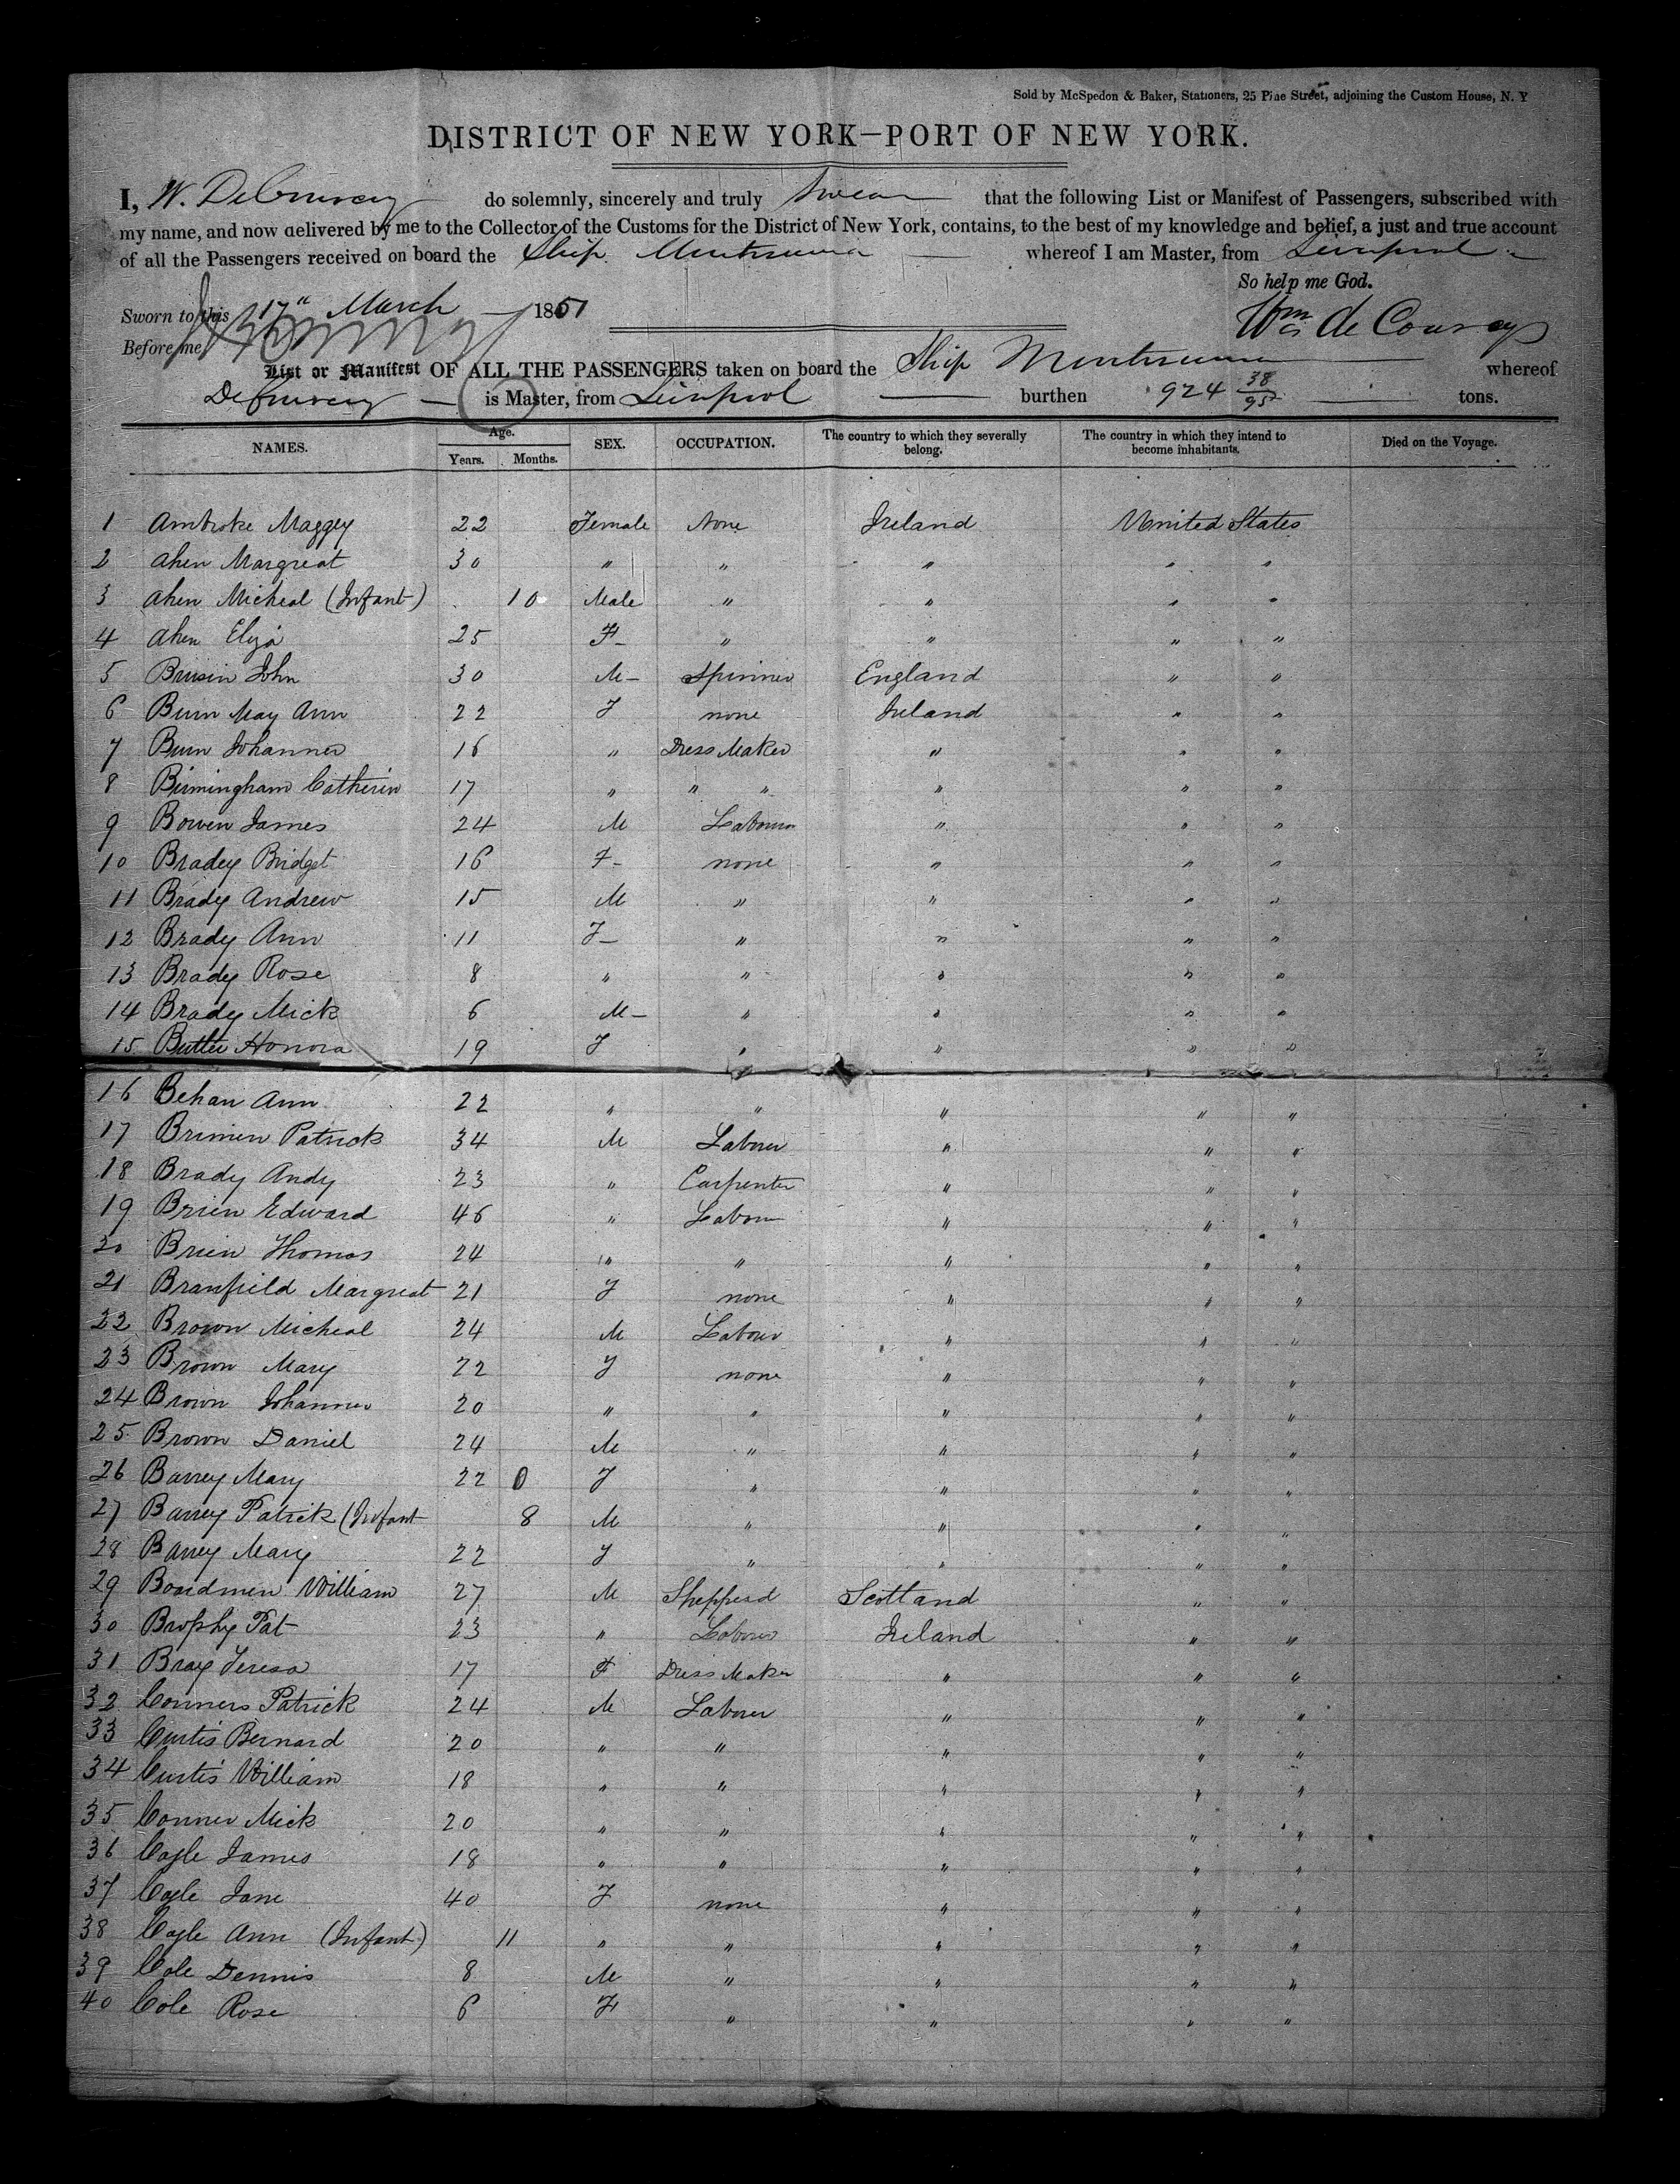 Sold by McSpedon & Baker, Stationers, 25 Pine Street, adjoining the Custom House, N. Y
DISTRICT OF NEW YORK—PORT OF NEW YORK.
I, W. DeCourcey do solemnly, sincerely and truly swear that the following List or Manifest of Passengers, subscribed with
my name, and now delivered by me to the Collector of the Customs for the District of New York, contains, to the best of my knowledge and belief, a just and true account
of all the Passengers received on board the Ship Montezuma whereof I am Master, from Liverpool
So help me God.
Sworn to this 17" March 1851
Wm de Courcey
Before me,
List or Manifest OF ALL THE PASSENGERS taken on board the Ship Montezuma whereof
DeCourcey is Master, from Liverpool burthen 924 38/95 tons.
NAMES. Age. Years. Months. SEX. OCCUPATION. The country to which they severally belong. The country in which they intend to become inhabitants. Died on the Voyage.
1 Ambroke Maggey 22 Female None Ireland United States
2 Ahen Margreat 30 " " " " "
3 Ahen Micheal (Infant) 10 Male " " " "
4 Ahen Eliza 25 F " " " "
5 John 30 M Spinner England " "
6 Burn May Ann 22 F none Ireland " "
7 Burn Johanner 16 " Dress Maker " " "
8 Birmingham Catherin 17 " " " " " "
9 Bowen James 24 M Labourer " " "
10 Bradey Bridget 16 F none " " "
11 Brady Andrew 15 M " " " "
12 Brady Ann 11 F " " " "
13 Brady Rose 8 " " " " "
14 Brady Mick 6 M " " " "
15 Butler Honora 19 F " " " "
16 Behan Ann 22 " " " " "
17 Brimen Patrick 34 M Labourer " " "
18 Brady Andy 23 " Carpenter " " "
19 Brien Edward 46 " Labour " " "
20 Brien Thomas 24 " " " " "
21 Branfield Margreat 21 F none " " "
22 Brown Micheal 24 M Labour " " "
23 Brown Mary 22 F none " " "
24 Brown Johanner 20 " " " " "
25 Brown Daniel 24 M " " " "
26 Barrey Mary 22 0 F " " " "
27 Barrey Patrick (Infant 8 M " " " "
28 Barrey Mary 22 F " " " "
29 Boardmen William 27 M Shepperd Scotland " "
30 Brophy Pat 23 " Labour Ireland " "
31 Bray Teresa 17 F Dress Maker " " "
32 Conners Patrick 24 M Labourer " " "
33 Curtis Bernard 20 " " " " "
34 Curtis William 18 " " " " "
35 Conner Mick 20 " " " " "
36 Cogle James 18 " " " " "
37 Cogle Jane 40 F none " " "
38 Cogle Ann (Infant) 11 " " " " "
39 Cole Dennis 8 M " " " "
40 Cole Rose 6 F " " " "